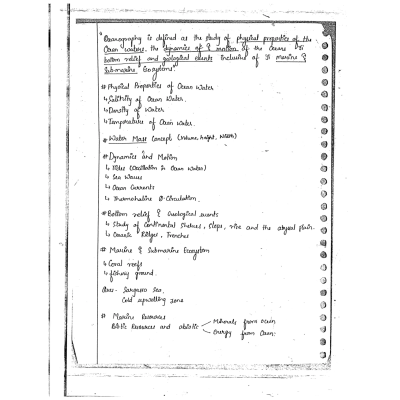 "Oceanography is defined as the study of physical properties of the
Ocean waters, the dynamics of & motion of the Oceans it's
bottom relief and geological events inclusive of it marine &
Submarine Ecosystems".
# Physical Properties of Ocean Water
↳ Salinity of Ocean Water.
↳ Density of Water
↳ Temperature of Ocean Water.
# Water Mass Concept (Volume, height, Width)
# Dynamics and Motion
↳ Tides (Oscillation in Ocean Water)
↳ Sea Waves
↳ Ocean Currents
↳ Thermohaline Circulation.
# Bottom relief & Geological events
↳ Study of Continental Shelves, Slope, rise and the abyssal plain.
↳ Oceanic Ridges, Trenches
# Marine & Submarine Ecosystem
↳ Coral reefs
↳ fishing ground.
Sargasso Sea,
Cold upwelling zone
# Marine Resources
Biotic Resources and abiotic
Minerals from ocean
Energy from Ocean.